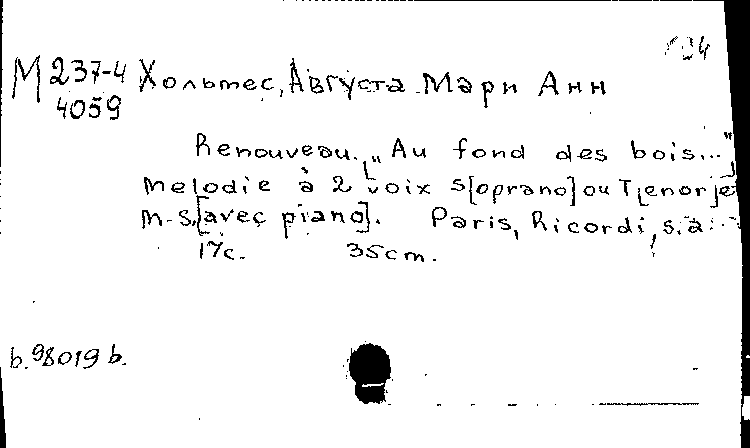 М 237-4 Хольмес, Августа Мари Анн
4059
Renouveau. ["Au fond des bois..."]
melodie à 2 voix s[oprano] ou T[enor] et
m-s. [avec piano]. Paris, Ricordi, s.a.
17c. 35cm.
b.98019 b.